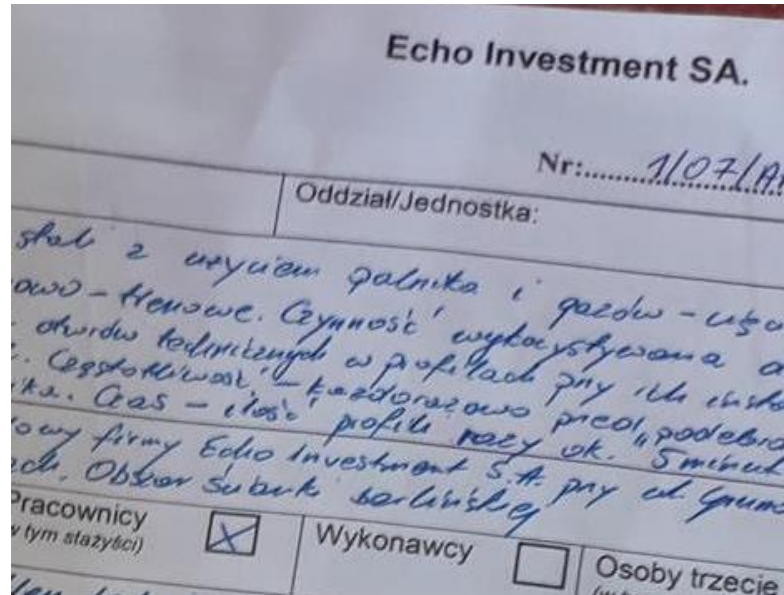 Echo Investment SA.
Nr:....... 1/07/A
Oddział/Jednostka:
stali z użyciem palnika i gazów -
owo - tlenowe. Czynność wykorzystywana
otworów technicznych w profilach przy ich
. Częstotliwość - każdorazowo przed
. Czas - ilość profili razy ok. 5 minut
owy firmy Echo Investment S.A. przy ul.
ach. Obszar śluzy berlińskiej
Pracownicy
w tym stażyści)
Wykonawcy
Osoby trzecie